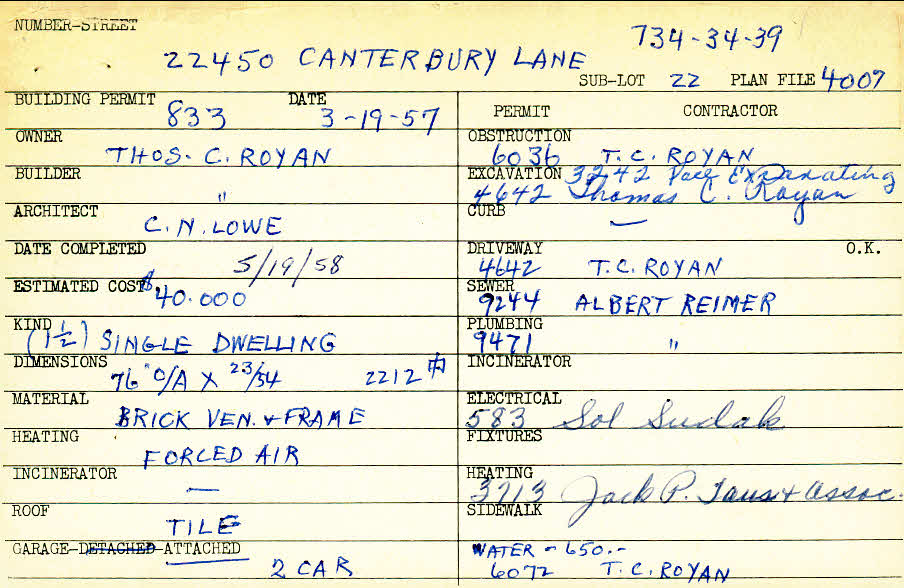 NUMBER-STREET
22450 CANTERBURY LANE 734-34-39
SUB-LOT 22 PLAN FILE 4007
BUILDING PERMIT 833 DATE 3-19-57
OWNER THOS. C. ROYAN
BUILDER "
ARCHITECT C. N. LOWE
DATE COMPLETED 5/19/58
ESTIMATED COST $40.000
KIND (1½) SINGLE DWELLING
DIMENSIONS 76" O/A X 23/54 2212
MATERIAL BRICK VEN. & FRAME
HEATING FORCED AIR
INCINERATOR —
ROOF TILE
GARAGE-DETACHED-ATTACHED
2 CAR
PERMIT CONTRACTOR
OBSTRUCTION
6036 T. C. ROYAN
EXCAVATION 3242 Excavating
4642 Thomas C. Royan
CURB —
DRIVEWAY O.K.
4642 T. C. ROYAN
SEWER
9244 ALBERT REIMER
PLUMBING
9471 "
INCINERATOR
ELECTRICAL
583 Sol Sudak
FIXTURES
HEATING
3713 Jack P. & Assoc.
SIDEWALK
WATER - 650.-
6072 T. C. ROYAN